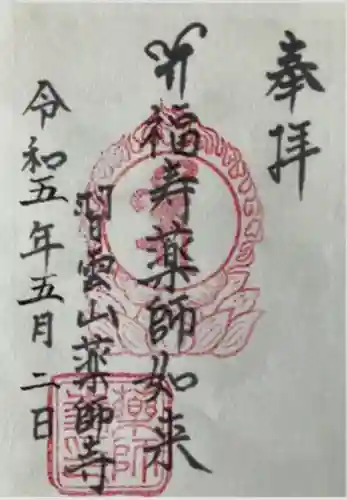 奉拝
福寿薬師如来
習雲山薬師寺
令和五年五月二日